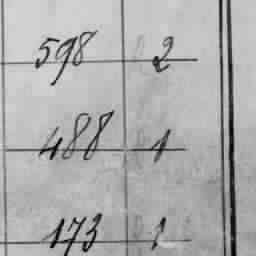 598 2
488 1
173 1